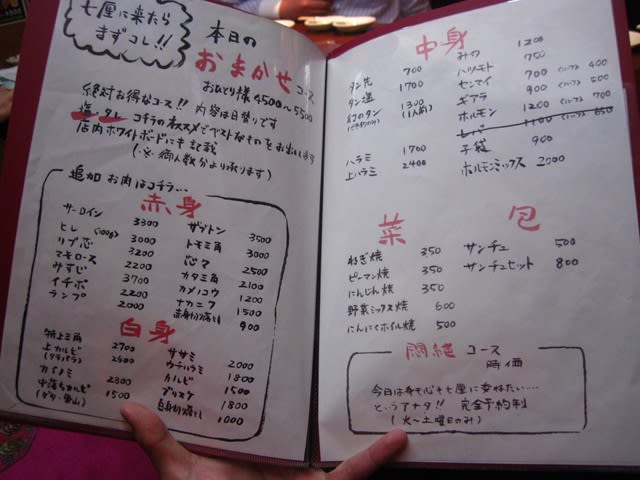 七厘に来たら
まずコレ!!
本日の
おまかせコース
おひとり様4500〜5500
絶対お得なコース!! 内容は日替りです
塩・タレ コチラのオススメでベストなものをお出しします
店内ホワイトボードにも記載
(※御人数分より承ります)
追加 お肉はコチラ…
赤身
サーロイン 3300
ヒレ(100g) 3000
リブ芯 3200
マキロース 2200
みすじ 3700
イチボ 2200
ランプ 2000
ザブトン 3500
トモ三角 3000
芯マ 2500
カタ三角 2100
カメノコウ 1200
ナカニク 1500
赤身切り落とし 900
白身
特上三角 2700
上カルビ 2400
(タテバラ)
カイノミ 2300
中落ちカルビ 1500
(ゲタ・)
ササミ 2000
ウチハラミ 1800
カルビ 1500
ブリスケ 1800
白身切り落とし 1000
中身
タン先 700
タン塩 1700
幻のタン 1300
(1人前)
ハラミ 1700
上ハラミ 2400
ミノ 1200
ハツモト 750
センマイ 700 (ハーフ) 400
ギアラ 900 (ハーフ) 500
ホルモン 1200 (ハーフ) 700
レバー 1100 (ハーフ) 650
子袋 900
ホルモンミックス 2000
菜
ねぎ焼 350
ピーマン焼 350
にんじん焼 350
野菜ミックス焼 600
にんにくホイル焼 500
包
サンチュ 500
サンチュセット 800
悶絶 コース
時価
今日は身も心も七厘に委ねたい…
というアナタ!! 完全予約制
(火〜土曜日のみ)